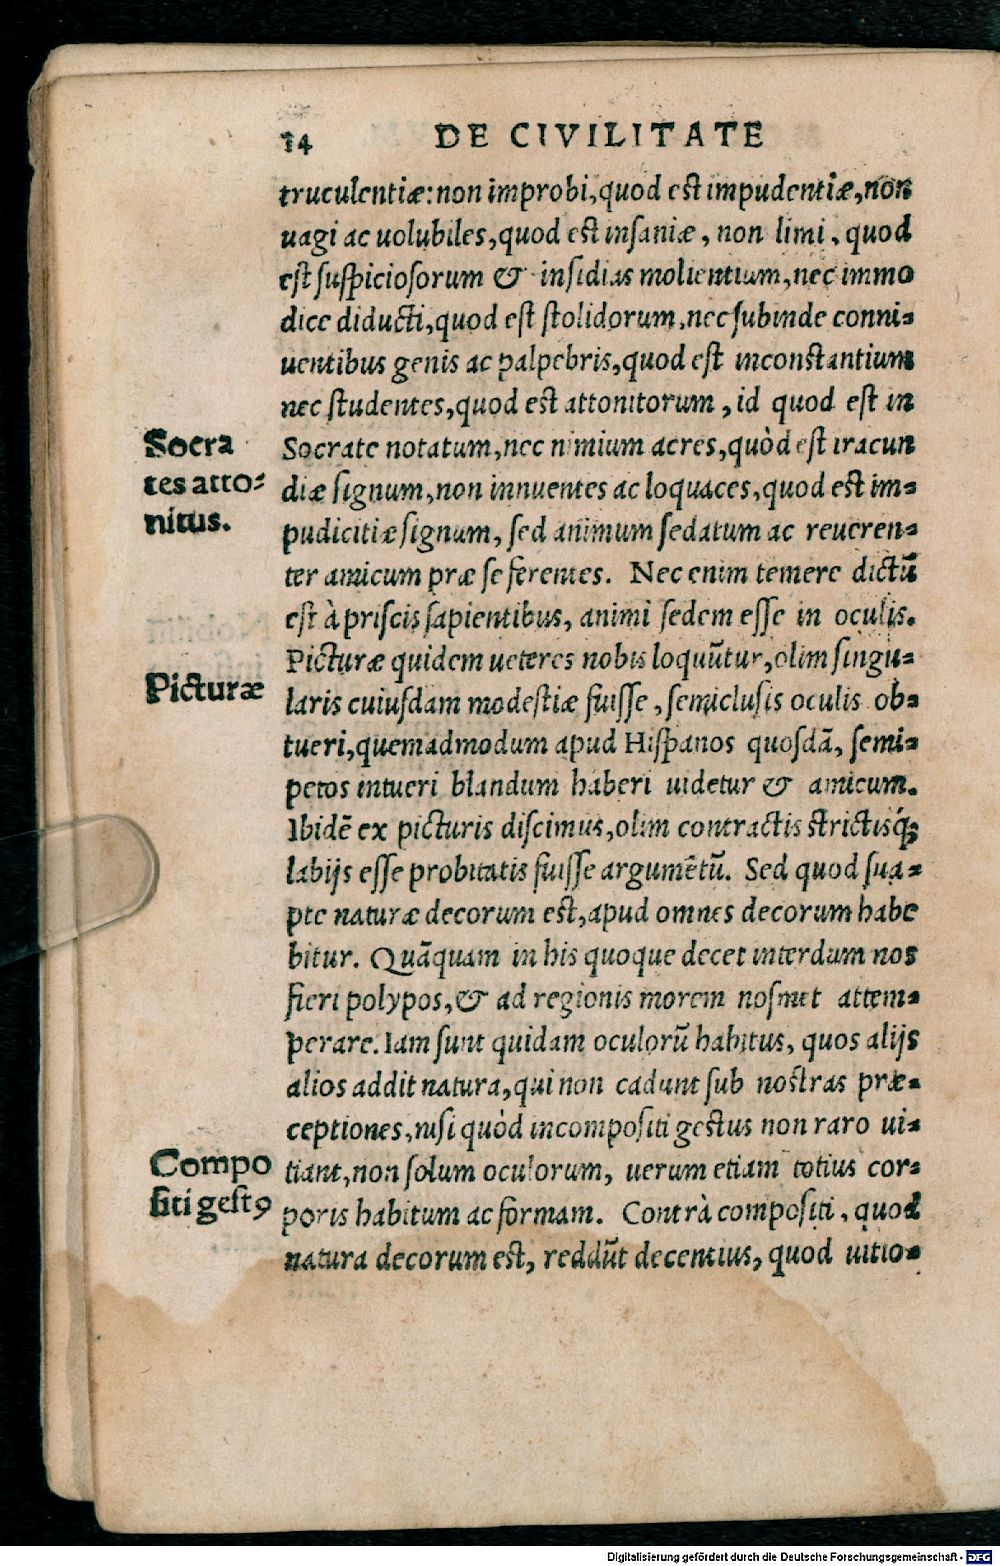 14 DE CIVILITATE
truculentiæ: non improbi, quod est impudentiæ, non
uagi ac uolubiles, quod est insaniæ, non limi, quod
est suspiciosorum & insidias molientium, nec immo
dice diducti, quod est stolidorum, nec subinde conni-
uentibus genis ac palpebris, quod est inconstantium
nec studentes, quod est attonitorum, id quod est in
Socrate notatum, nec nimium acres, quòd est iracun
diæ signum, non innuentes ac loquaces, quod est im-
pudicitiæ signum, sed animum sedatum ac reueren-
ter amicum præ se ferentes. Nec enim temere dictũ
est à priscis sapientibus, animi sedem esse in oculis.
Picturæ quidem ueteres nobis loquũtur, olim singu-
laris cuiusdam modestiæ fuisse, semiclusis oculis ob-
tueri, quemadmodum apud Hispanos quosdã, semi-
petos intueri blandum haberi uidetur & amicum.
Ibidẽ ex picturis discimus, olim contractis strictisq́;
labijs esse probitatis fuisse argumẽtũ. Sed quod sua-
pte naturæ decorum est, apud omnes decorum habe
bitur. Quãquam in his quoque decet interdum nos
fieri polypos, & ad regionis morem nosmet attem-
perare. Iam sunt quidam oculorũ habitus, quos alijs
alios addit natura, qui non cadunt sub nostras præ-
ceptiones, nisi quòd incompositi gestus non raro ui-
tiant, non solum oculorum, uerum etiam totius cor-
poris habitum ac formam. Contrà compositi, quod
natura decorum est, reddũt decentius, quod uitio-
Socra
tes atto-
nitus.
Picturæ
Compo
siti gestꝯ
Digitalisierung gefördert durch die Deutsche Forschungsgemeinschaft - DFG